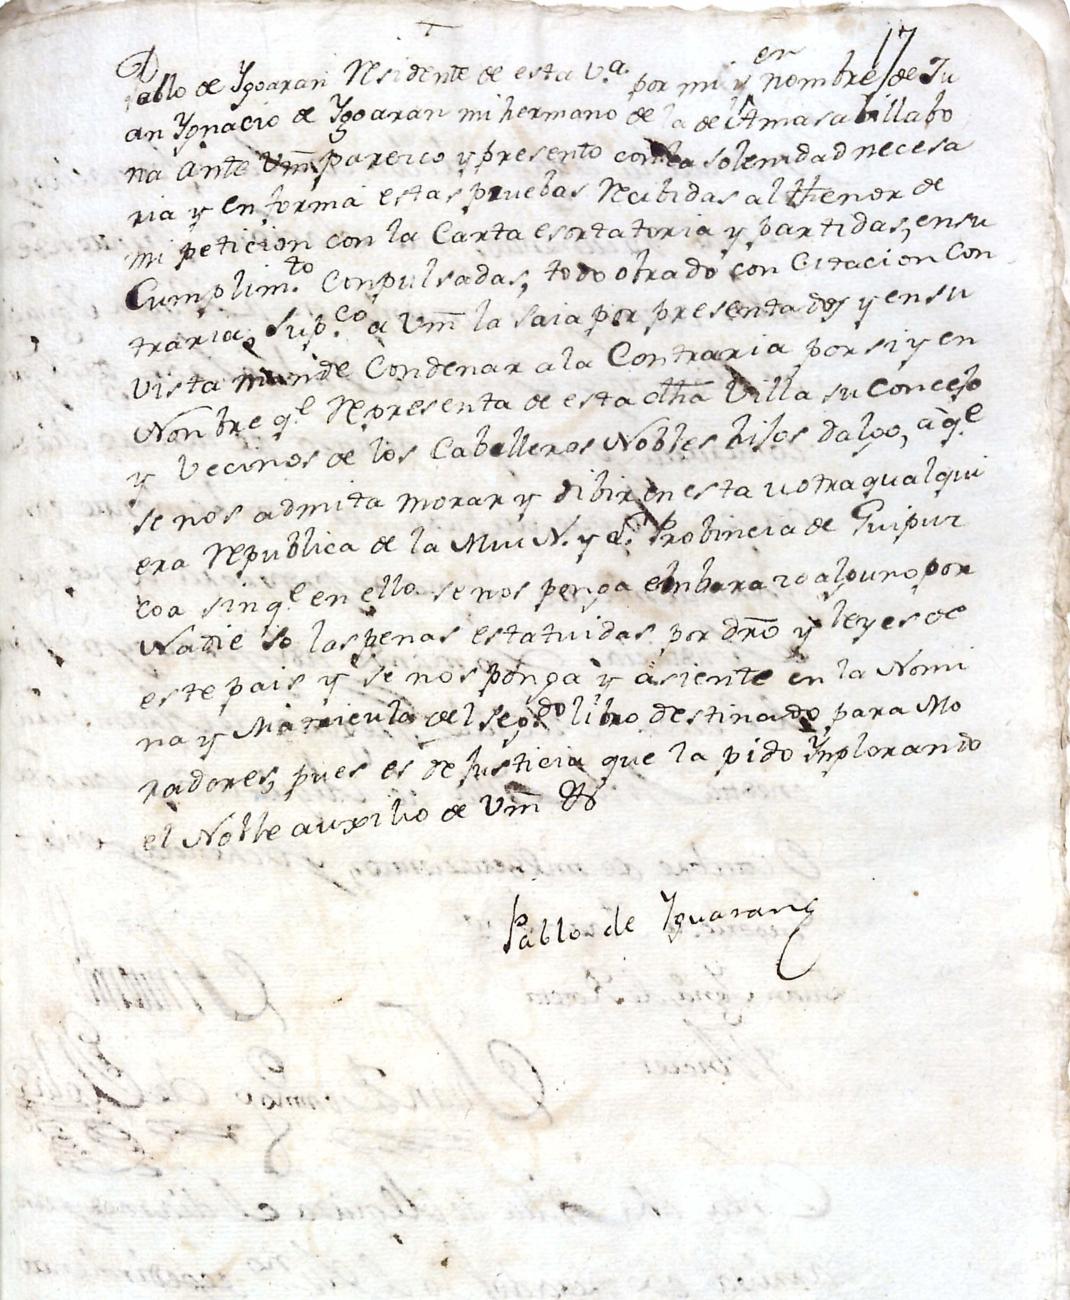 17
Pablo de Ygoaran Residente de esta V.ª por mi y en nombre de Ju
an Ygnacio de Ygoaran mi hermano de la de Amasabillabo
na ante Vm̃ parezco y presento con la solenidad necesa
ria y en forma estas pruebas Recibidas al thenor de
mi peticion con la Carta esortatoria y partidas, en su
Cumplim.to Conpulsadas, todo obrado con Citacion Con
traria, Sup.co a Vm̃ la haia por presentados y en su
Vista mande Condenar a la Contraria por si y en
Nonbre q.e Representa de esta dha Villa su Concejo
y Vecinos de los Caballeros Nobles hijos dalgo, à q.e
se nos admita morar y bibir en esta u otra qualqui
era Republica de la Mui N. y L. Probincia de Guipuz
coa sin q.e en ello se nos ponga enbarazo alguno por
Nadie so las penas estatuidas por dr̃o y leyes de
este pais y se nos ponga y asiente en la Nomi
na y Matricula del seg.do libro destinado para Mo
radores, pues es de Justicia que la pido Ynplorando
el Noble auxilio de Vm̃ &
Pablo de Yguaran